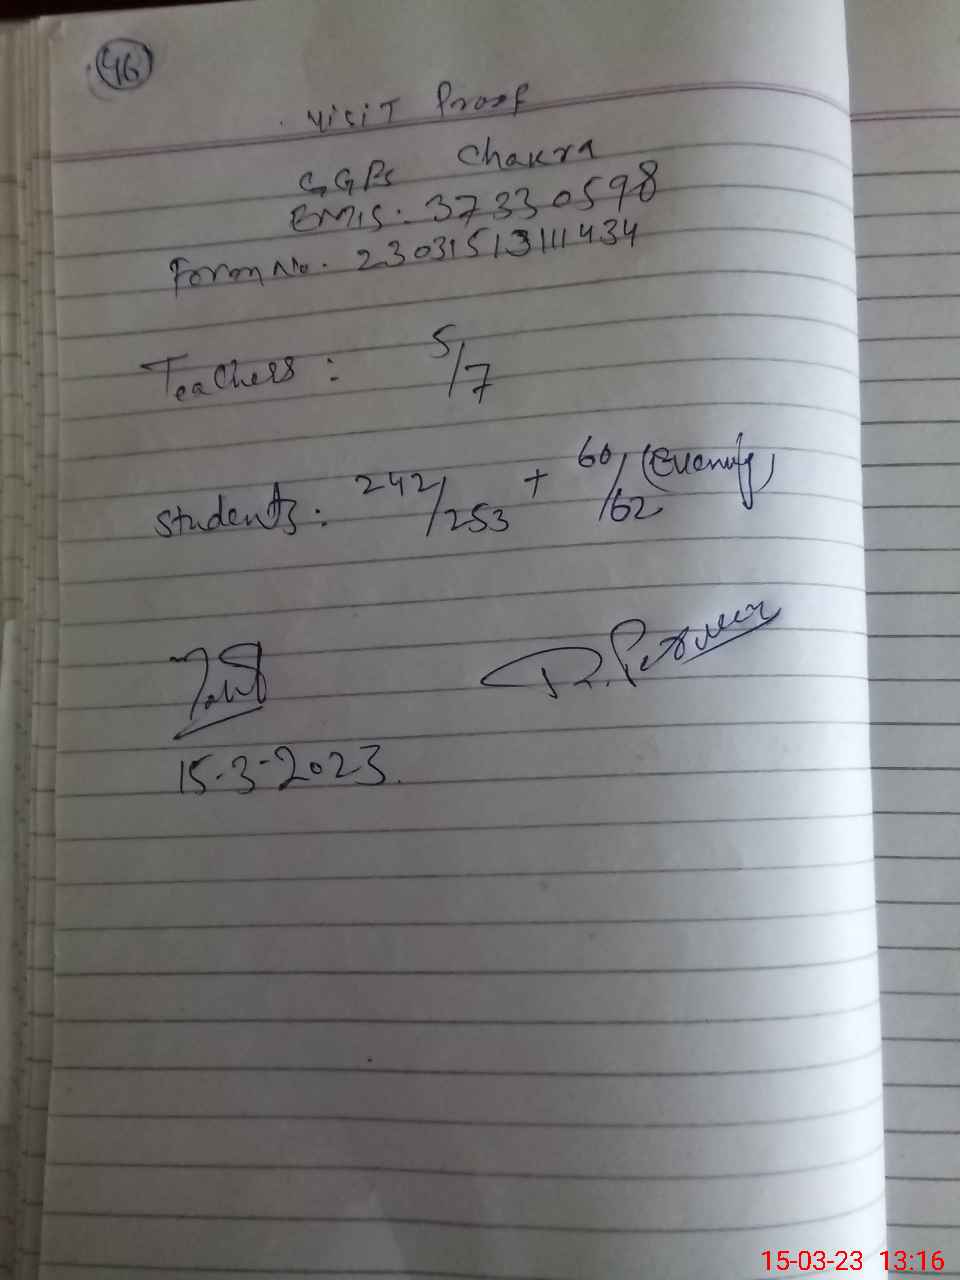 46
Visit Proof
GGPS Chakra
EMIS. 37330598
Form No. 2303151311434
Teachers : 5/7
Students : 242/253 + 60/62 (Evening)
15-3-2023.
15-03-23 13:16